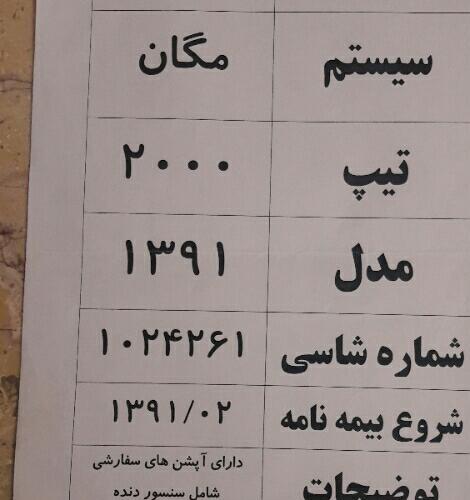 سیستم مگان
تیپ ۲۰۰۰
مدل ۱۳۹۱
شماره شاسی ۱۰۲۴۲۶۱
شروع بیمه نامه ۱۳۹۱/۰۲
توضیحات دارای آپشن های سفارشی
شامل سنسور دنده